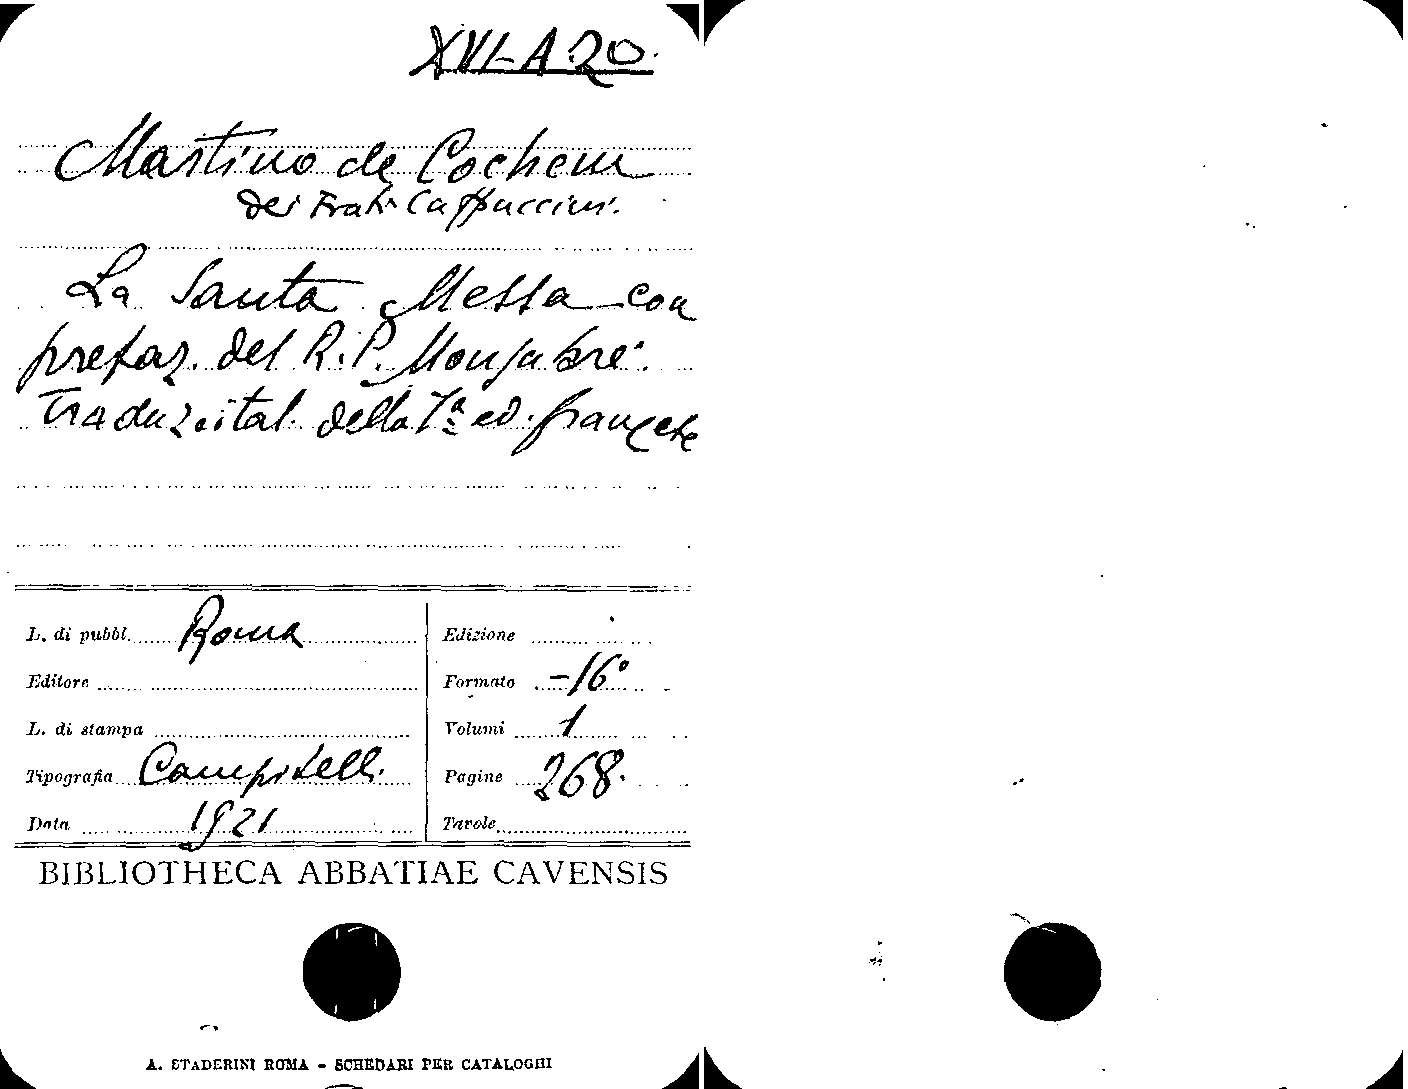 XVI-A-20.
Martino de Cochem
dei Frati Cappuccini.
La Santa Messa con
prefaz. del R. P. Monsabré.
Traduz. ital. della 7ª ed. francese
L. di pubbl. Roma
Editore
L. di stampa
Tipografia Campitelli.
Data 1921
Edizione
Formato -16°
Volumi 1
Pagine 268.
Tavole
BIBLIOTHECA ABBATIAE CAVENSIS
A. STADERINI ROMA - SCHEDARI PER CATALOGHI